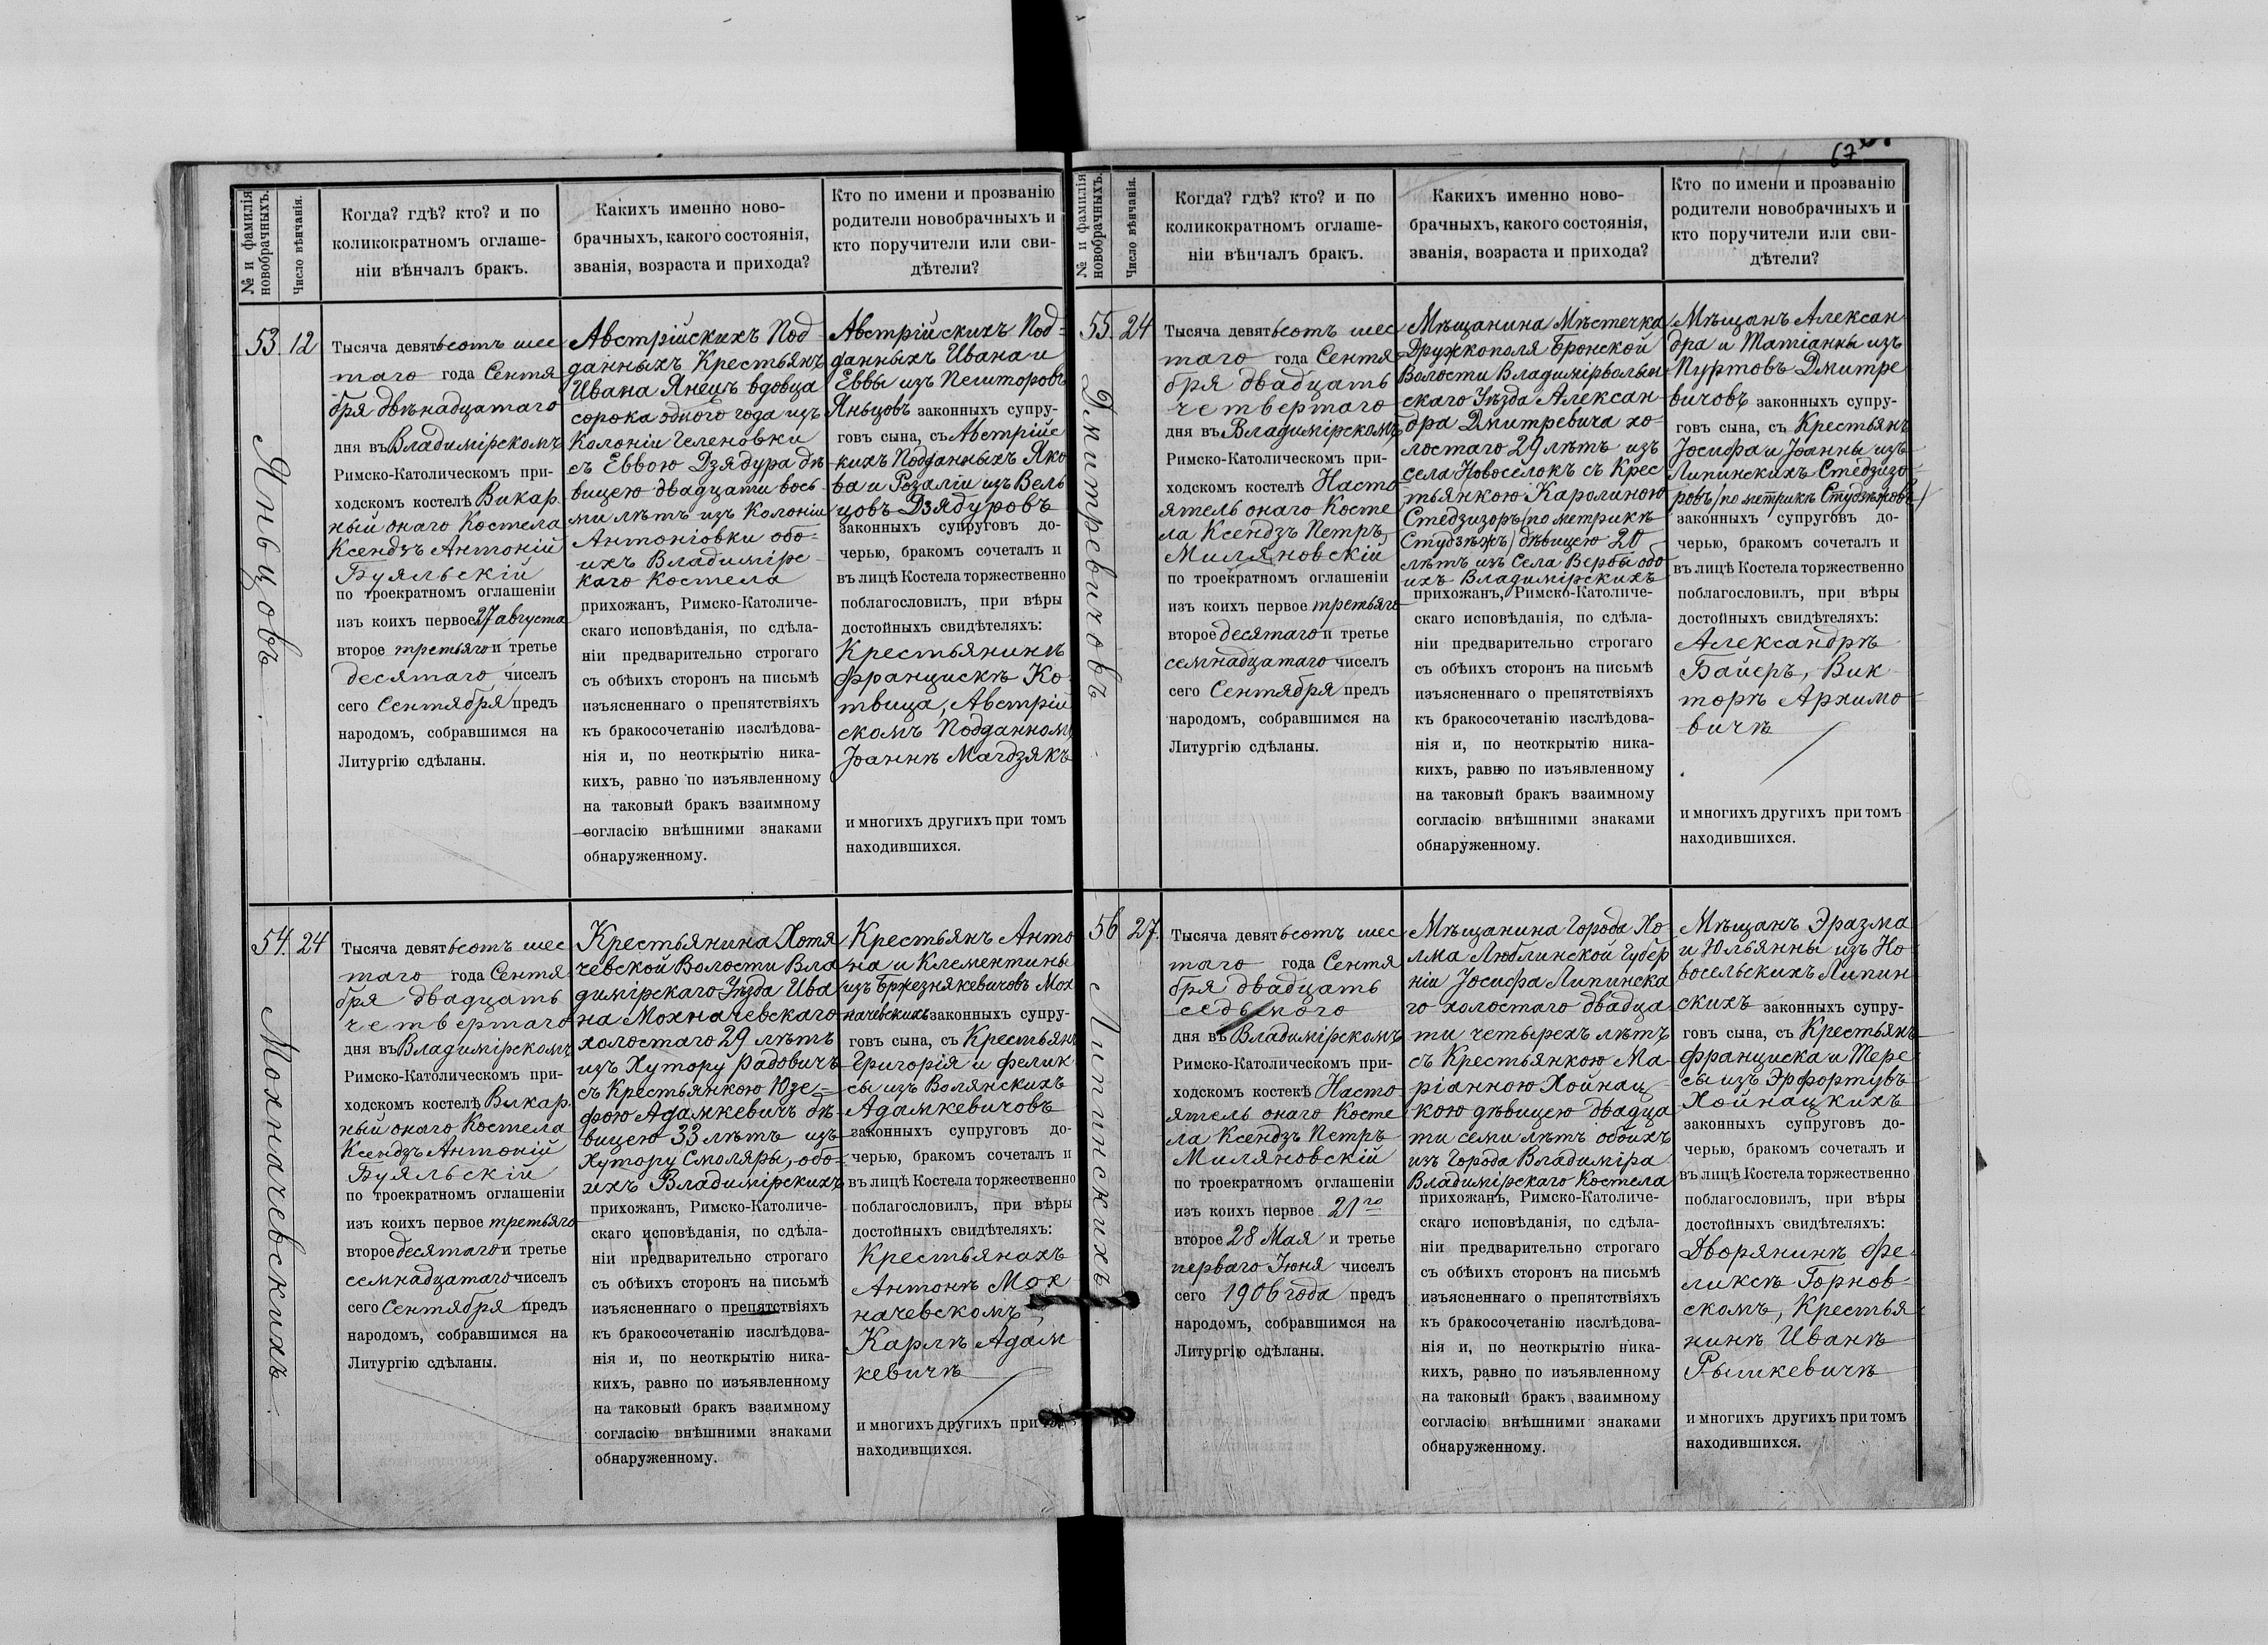 67
№ и фамилія новобрачныхъ.
Число вѣнчанія.
Когда? гдѣ? кто? и по
коликократномъ оглаше-
ніи вѣнчалъ бракъ.
Какихъ именно ново-
брачныхъ, какого состоянія,
званія, возраста и прихода?
Кто по имени и прозванію
родители новобрачныхъ и
кто поручители или сви-
дѣтели?
53.
Яньцовъ.
12
Тысяча девятьсотъ шес
таго года Сентя
бря двѣнадцатаго
дня въ Владимірскомъ
Римско-Католическомъ при-
ходскомъ костелѣ Викар
ный онаго Костела
Ксендзъ Антоній
Буяльскій
по троекратномъ оглашеніи
изъ коихъ первое 27 августа
второе третьяго и третье
десятаго чиселъ
сего Сентября предъ
народомъ, собравшимся на
Литургію сдѣланы.
Австрійскихъ Под
данныхъ Крестьянъ
Ивана Янецъ вдовца
сорока одного года изъ
Колоніи Геленовки
съ Еввою Дзядура дѣ
вицею двадцати вось
ми лѣтъ изъ Колоніи
Антоніовки обо-
ихъ Владимірс-
каго Костела
прихожанъ, Римско-Католиче-
скаго исповѣданія, по сдѣла-
ніи предварительно строгаго
съ обѣихъ сторонъ на письмѣ
изъясненнаго о препятствіяхъ
къ бракосочетанію изслѣдова-
нія и, по неоткрытію ника-
кихъ, равно по изъявленному
на таковый бракъ взаимному
согласію внѣшними знаками
обнаруженному.
Австрійскихъ Под-
данныхъ Ивана и
Еввы изъ Пешторовъ
Яньцовъ законныхъ супру-
говъ сына, съ Австрійс
кихъ Подданныхъ Яко
ва и Розаліи изъ Вель
цовъ Дзядуровъ
законныхъ супруговъ до-
черью, бракомъ сочеталъ и
въ лицѣ Костела торжественно
поблагословилъ, при вѣры
достойныхъ свидѣтеляхъ:
Крестьянинѣ
Францискѣ Ко-
твица, Австрій
скомъ Подданномъ
Іоаннѣ Магдзякъ
и многихъ другихъ при томъ
находившихся.
54.
Мохначевскихъ.
24
Тысяча девятьсотъ шес
таго года Сентя
бря двадцать
четвертаго
дня въ Владимірскомъ
Римско-Католическомъ при-
ходскомъ костелѣ Викар
ный онаго Костела
Ксендзъ Антоній
Буяльскій
по троекратномъ оглашеніи
изъ коихъ первое третьяго
второе десятаго и третье
семнадцатаго чиселъ
сего Сентября предъ
народомъ, собравшимся на
Литургію сдѣланы.
Крестьянина Хотя
чевской Волости Вла
димірскаго Уѣзда Ива
на Мохначевскаго
холостаго 29 лѣтъ
изъ Хутору Радовичъ
съ Крестьянкою Юзе-
фою Адамкевичъ дѣ-
вицею 33 лѣтъ изъ
Хутору Смоляры, обо-
ихъ Владимірскихъ
прихожанъ, Римско-Католиче-
скаго исповѣданія, по сдѣла-
ніи предварительно строгаго
съ обѣихъ сторонъ на письмѣ
изъясненнаго о препятствіяхъ
къ бракосочетанію изслѣдова-
нія и, по неоткрытію ника-
кихъ, равно по изъявленному
на таковый бракъ взаимному
согласію внѣшними знаками
обнаруженному.
Крестьянъ Анто
на и Клементины
изъ Бржезнякевичовъ Мох
начевскихъ законныхъ супру-
говъ сына, съ Крестьянъ
Григорія и Фелик
сы изъ Волянскихъ
Адамкевичовъ
законныхъ супруговъ до-
черью, бракомъ сочеталъ и
въ лицѣ Костела торжественно
поблагословилъ, при вѣры
достойныхъ свидѣтеляхъ:
Крестьянахъ
Антонѣ Мох
начевскомъ,
Карлѣ Адам
кевичѣ
и многихъ другихъ при
находившихся.
№ и фамилія новобрачныхъ.
Число вѣнчанія.
Когда? гдѣ? кто? и по
коликократномъ оглаше-
ніи вѣнчалъ бракъ.
Какихъ именно ново-
брачныхъ, какого состоянія,
званія, возраста и прихода?
Кто по имени и прозванію
родители новобрачныхъ и
кто поручители или сви-
дѣтели?
55.
Дмитревичовъ.
24
Тысяча девятьсотъ шес
таго года Сентя
бря двадцать
четвертаго
дня въ Владимірскомъ
Римско-Католическомъ при-
ходскомъ костелѣ Насто
ятель онаго Косте
ла Ксендзъ Петръ
Миляновскій
по троекратномъ оглашеніи
изъ коихъ первое третьяго
второе десятаго и третье
семнадцатаго чиселъ
сего Сентября предъ
народомъ, собравшимся на
Литургію сдѣланы.
Мѣщанина Мѣстечка
Дружкополя Бронской
Волости Владимірволын
скаго Уѣзда Алексан-
дра Дмитревича хо-
лостаго 29 лѣтъ изъ
села Новоселокъ съ Крес
тьянкою Каролиною
Стедзизоръ (по метрикѣ
Студзѣжъ) дѣвицею 20
лѣтъ изъ Села Вербы обо
ихъ Владимірскихъ
прихожанъ, Римско-Католиче-
скаго исповѣданія, по сдѣла-
ніи предварительно строгаго
съ обѣихъ сторонъ на письмѣ
изъясненнаго о препятствіяхъ
къ бракосочетанію изслѣдова-
нія и, по неоткрытію ника-
кихъ, равно по изъявленному
на таковый бракъ взаимному
согласію внѣшними знаками
обнаруженному.
Мѣщанъ Алексан
дра и Матіанны изъ
Пуртовъ Дмитре
вичовъ законныхъ супру-
говъ сына, съ Крестьянъ
Іосифа и Іоанны изъ
Липинскихъ Стедзизо-
ровъ (по метрикѣ Студзѣжовъ)
законныхъ супруговъ до-
черью, бракомъ сочеталъ и
въ лицѣ Костела торжественно
поблагословилъ, при вѣры
достойныхъ свидѣтеляхъ:
Александрѣ
Байеръ, Вик-
торѣ Архимо-
вичѣ
и многихъ другихъ при томъ
находившихся.
56
Липинскихъ.
27.
Тысяча девятьсотъ шес
таго года Сентя
бря двадцать
седьмого
дня въ Владимірскомъ
Римско-Католическомъ при-
ходскомъ костекѣ Насто
ятель онаго Косте
ла Ксендзъ Петръ
Миляновскій
по троекратномъ оглашеніи
изъ коихъ первое 21го
второе 28 Мая и третье
перваго Іюня чиселъ
сего 1906 года предъ
народомъ, собравшимся на
Литургію сдѣланы.
Мѣщанина Города Хо-
лма Люблинской Губер
ніи Іосифа Липинска
го холостаго двадца
ти четырехъ лѣтъ
съ Крестьянкою Ма-
ріанною Хойнац-
кою дѣвицею двадца
ти семи лѣтъ обоихъ
изъ Города Владиміра
Владимірскаго Костела
прихожанъ, Римско-Католиче-
скаго исповѣданія, по сдѣла-
ніи предварительно строгаго
съ обѣихъ сторонъ на письмѣ
изъясненнаго о препятствіяхъ
къ бракосочетанію изслѣдова-
нія и, по неоткрытію ника-
кихъ, равно по изъявленному
на таковый бракъ взаимному
согласію внѣшними знаками
обнаруженному.
Мѣщанъ Эразма
и Юльянны изъ Но-
восельскихъ Липин
скихъ законныхъ супру-
говъ сына, съ Крестьянъ
Франциска и Тере-
сы изъ Эрфортувъ
Хойнацкихъ
законныхъ супруговъ до-
черью, бракомъ сочеталъ и
въ лицѣ Костела торжественно
поблагословилъ, при вѣры
достойныхъ свидѣтеляхъ:
Дворянинѣ Фе-
ликсѣ Горнов-
скомъ, Крестья-
нинѣ Иванѣ
Рымкевичѣ
и многихъ другихъ при томъ
находившихся.